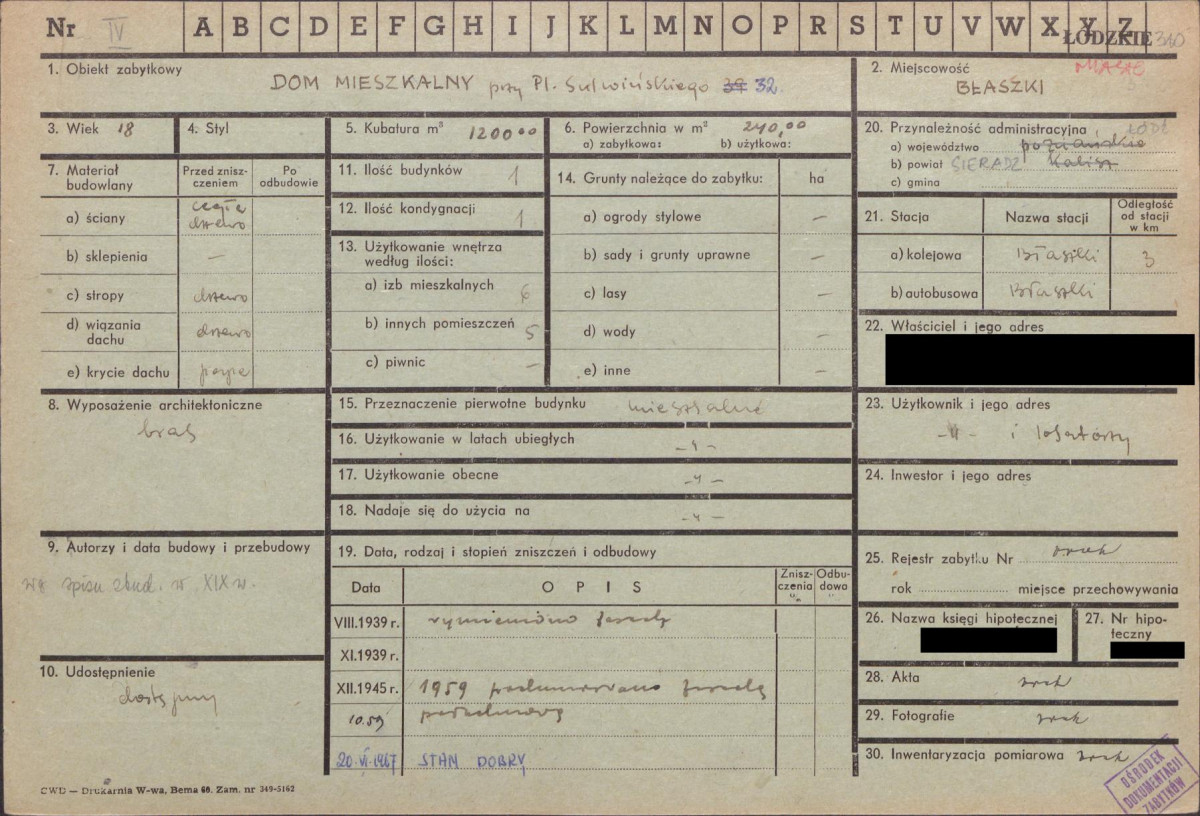 Nr IV A B C D E F G H I J K L M N O P R S T U V W X Y Z
ŁÓDZKIE 310
1. Obiekt zabytkowy
DOM MIESZKALNY przy Pl. Sulwińskiego 39 32.
2. Miejscowość MIASTO
BŁASZKI
3. Wiek 18
4. Styl
5. Kubatura m³ 1200,00
6. Powierzchnia w m² 240,00
a) zabytkowa: b) użytkowa:
7. Materiał budowlany
Przed zniszczeniem
Po odbudowie
a) ściany cegła drzewo
b) sklepienia —
c) stropy drzewo
d) wiązania dachu drzewo
e) krycie dachu papa
8. Wyposażenie architektoniczne
brak
9. Autorzy i data budowy i przebudowy
wg spisu zbud. w XIX w.
10. Udostępnienie
dostępny
11. Ilość budynków 1
12. Ilość kondygnacji 1
13. Użytkowanie wnętrza
według ilości:
a) izb mieszkalnych 6
b) innych pomieszczeń 5
c) piwnic —
14. Grunty należące do zabytku: ha
a) ogrody stylowe —
b) sady i grunty uprawne —
c) lasy —
d) wody —
e) inne —
15. Przeznaczenie pierwotne budynku mieszkalne
16. Użytkowanie w latach ubiegłych -"-
17. Użytkowanie obecne -"-
18. Nadaje się do użycia na -"-
19. Data, rodzaj i stopień zniszczeń i odbudowy
Data OPIS Zniszczenia % Odbudowa %
VIII.1939 r.
XI.1939 r.
XII.1945 r. 1959
10.59
20.VI.1967 STAN DOBRY
20. Przynależność administracyjna ŁÓDŹ
a) województwo poznańskie
b) powiat SIERADZ Kalisz
c) gmina
21. Stacja Nazwa stacji Odległość od stacji w km
a) kolejowa Błaszki 3
b) autobusowa Błaszki
22. Właściciel i jego adres
23. Użytkownik i jego adres
-"- i lokatorzy
24. Inwestor i jego adres
25. Rejestr zabytku Nr brak
rok miejsce przechowywania
26. Nazwa księgi hipotecznej
27. Nr hipoteczny
28. Akta brak
29. Fotografie brak
30. Inwentaryzacja pomiarowa brak
OŚRODEK
DOKUMENTACJI
ZABYTKÓW
CWD — Drukarnia W-wa, Bema 60. Zam. nr 349-5162